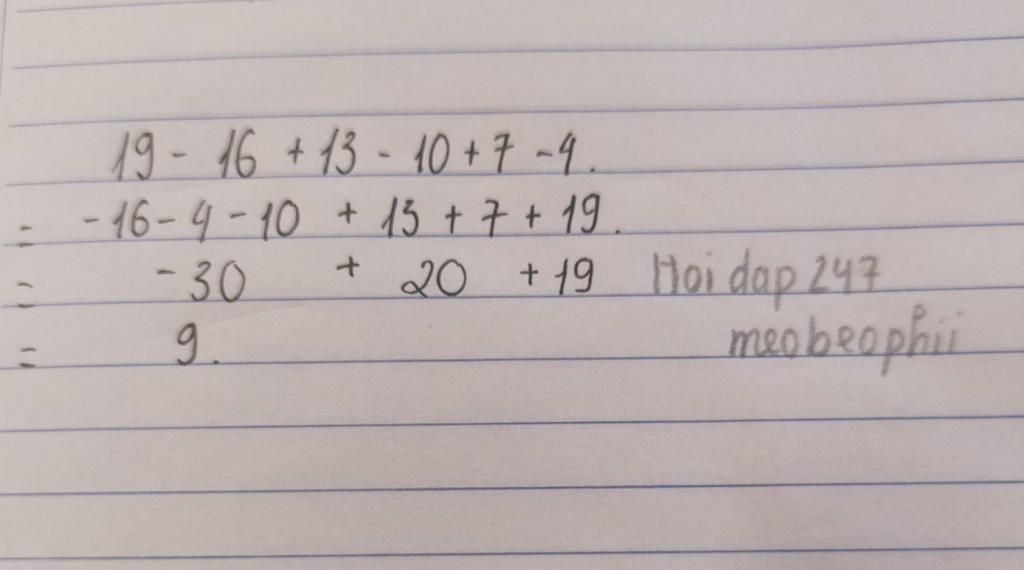 19 - 16 + 13 - 10 + 7 - 4.
= -16 - 4 - 10 + 13 + 7 + 19.
= -30 + 20 + 19 Hoi dap 247
= 9. meobeophii